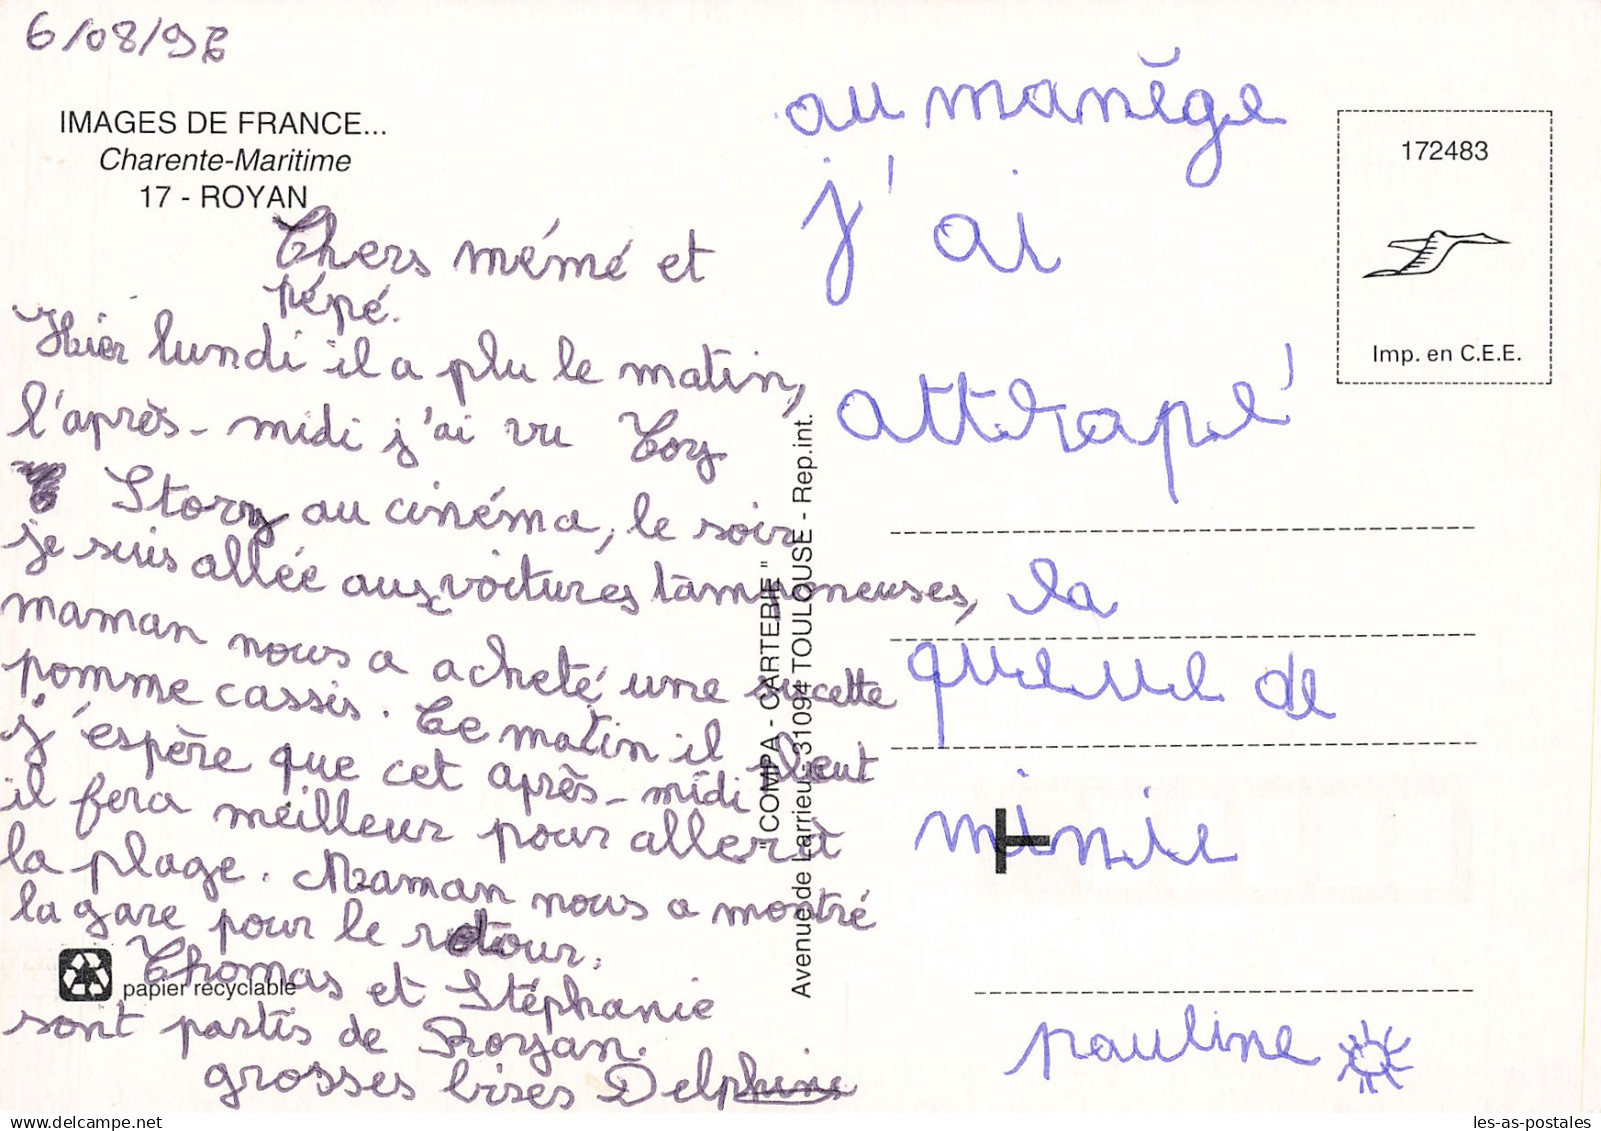 6/08/96
IMAGES DE FRANCE...
Charente-Maritime
17 - ROYAN
Chers mémé et
pépé.
Hier lundi il a plu le matin,
l'après-midi j'ai vu Toy
Story au cinéma, le soir
je suis allée aux voitures tamponeuses,
maman nous a acheté une sucette
pomme cassis. Ce matin il pleut
j'espère que cet après-midi
il fera meilleur pour aller à
la plage. Maman nous a montré
la gare pour le retour.
Thomas et Stéphanie
sont partis de Royan.
grosses bises Delphine
papier recyclable
"COMPA - CARTERIE"
Avenue de Larrieu - 31094 TOULOUSE - Rep.int.
au manège
j'ai
attrapé
la
queue de
minie
pauline
172483
Imp. en C.E.E.
T
les-as-postales